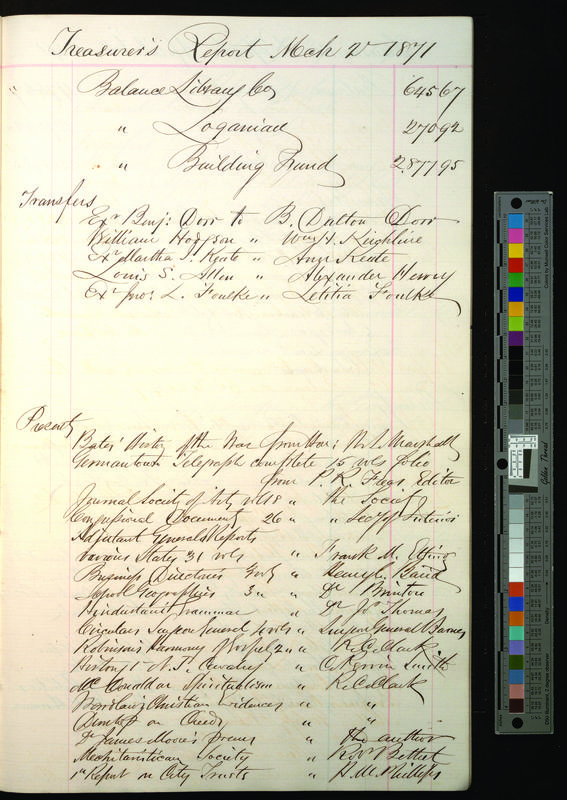 Treasurer's Report Mch 2d 1871
" Balance Library Co 645 67
" Loganian 270 92
" Building Fund 2877 95
Transfers
Exr Benj: Dorr to B. Dalton Dorr
William Hodgson " Wm H. Keighline
Exr Martha S. Keate " Ann Keate
Louis S. Allen " Alexander Henry
Exr Jno: L. Foulke " Letitia Foulke
Presents
Bates' Histy of the War from Hon: Marshall
Germantown Telegraph complete 15 vols folio
from P. R. Freas Editor
Journal Society of Arts vol 18 " the Society
Congressional Document 26 " " Secy of Interior
Adjutant Generals Reports
various States 31 vols " Frank M. Etting
Business Directories 9 vols " Henry Baird
School Geographies 3 " " Dr Brinton
Hindustani Grammar " Dr Jos Thomas
Circulars Surgeon General " Surgeon General Barnes
Robinson's Harmony of Gospel 2 " " R. C. Clark
History 1 N. J. Cavalry " Smith
McDonald on Spiritualism " R. C. Clark
Christian Evidences " "
Dunlop on Creeds " "
Dr James Moore's Poems " the author
Mechitaristican Society " Robt Bethell
1st Report on City Trusts " H. M. Phillips